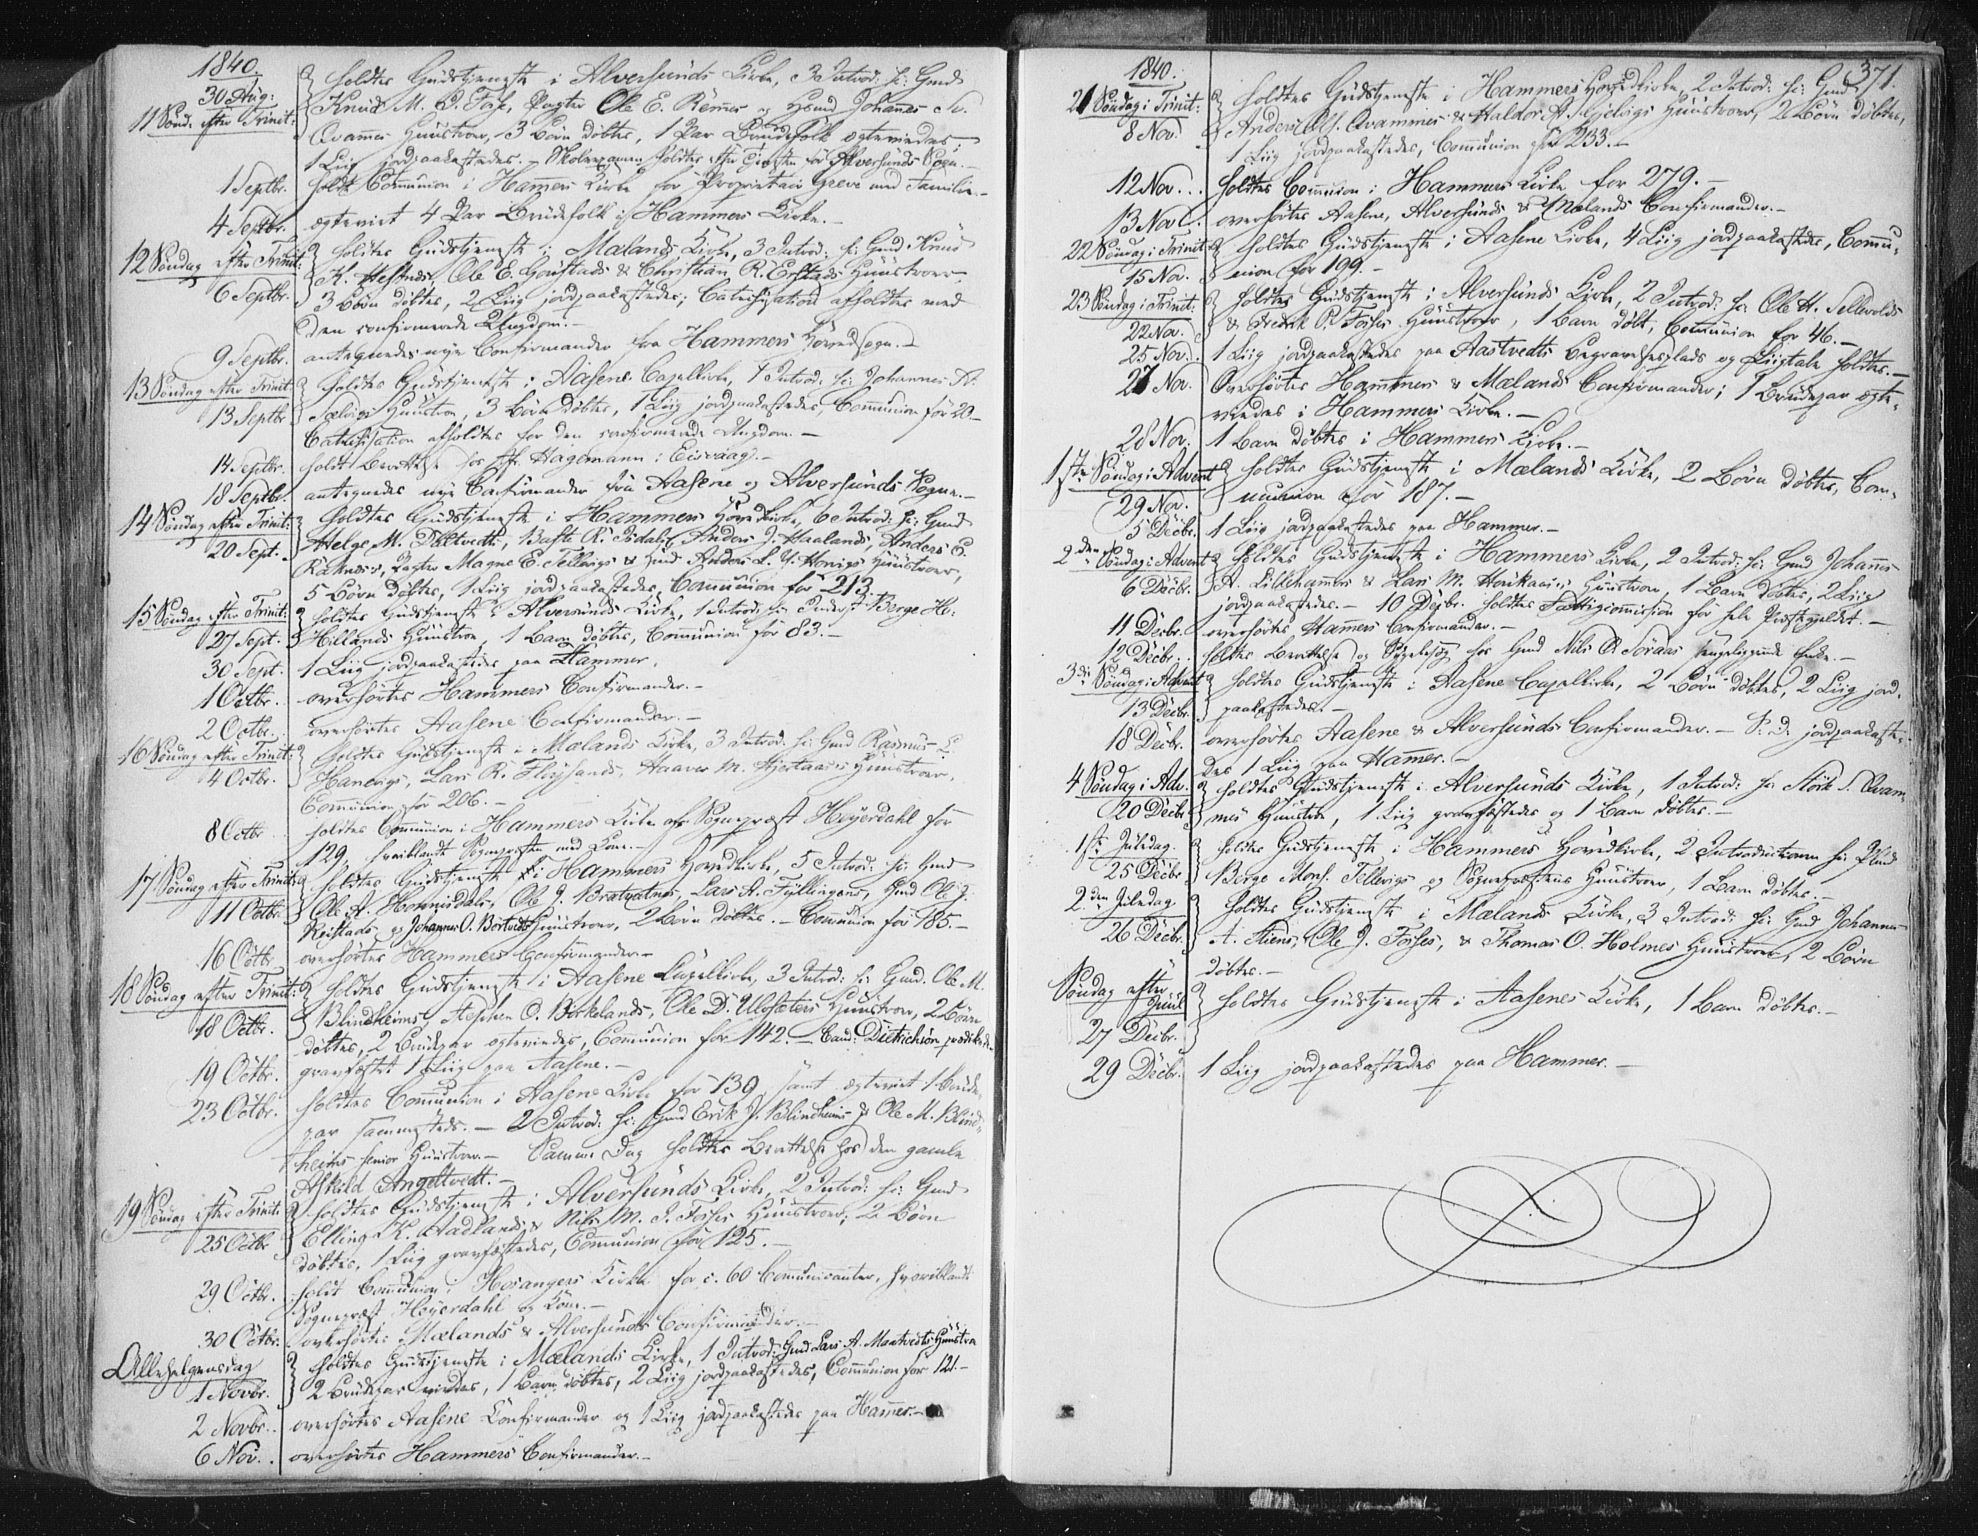 1840.
30 Aug:
11 Sønd. efter Trinit:
holdtes Gudstjeneste i Alversunds Kirke, 3 Introd: f: Gmd
Knud M. O. Fosse, Pagter Ole E. Remmes og Hsmd Johannes
Qvammes Huustroer, 3 Børn døbtes, 1 Par Brudefolk egteviedes,
1 Liig jordpaakastedes. – Skoleexamen holdtes efter Tjenesten for Alversunds Sogn.
1 Septbr. holdt Communion i Hammers Kirke for Proprietair Greve med Familie.–
4 Septbr. egteviet 4 Par Brudefolk i Hammers Kirke.–
12 Søndag efter Trinit:
6 Septbr.
holdtes Gudstjeneste i Mælands Kirke, 3 Introd: f: Gmd Knud
K. Ole E. & Christian R. Huustroer
3 Børn døbtes, 2 Liig jordpaakastedes; Catechisation afholdtes med
den confirmerede Ungdom.–
9 Septbr. antegnedes nye Confirmander fra Hammers Hovedsogn.–
13 Søndag efter Trinit
13 Septbr
holdtes Gudstjeneste i Aasene Capelkirke, 1 Introd: f: Johannes A.
Huustroe, 3 Børn døbtes, 1 Liig jordpaakastedes, Communion for 20–
Catechisation afholdtes for den confirmerede Ungdom.–
14 Septbr. holdt Berettelse hos Hagemann i Eisvaag.–
18 Septbr. antegnedes nye Confirmander fra Aasene og Alversunds Sogne.–
14 Søndag efter Trinit:
20 Sept.
holdtes Gudstjeneste i Hammers Hovedkirke, 6 Introd: f: Gmd
Helge M. Anders J. Haalands, Anders
Pagter Magne E. Tellevigs & Gmd Anders L. Y. Hongs Huustroer,
5 Børn døbtes, 1 Liig jordpaakastedes, Communion for 213.
15 Søndag efter Trinit:
27 Sept.
holdtes Gudstjeneste i Alversunds Kirke, 1 Introd: f: Berge H.
Hillands Huustroe, 1 Barn døbtes, Communion for 83.–
30 Sept. 1 Liig jordpaakastedes paa Hammer.
1 Octbr. overhørtes Hammers Confirmander.–
2 Octbr. overhørtes Aasene Confirmander.–
16 Søndag efter Trinit:
4 Octbr.
holdtes Gudstjeneste i Mælands Kirke, 3 Introd: f: Gmd Rasmus
Hanevigs, Lars R. Fløysands, Haaver M. Hjertaas's Huustroer,
Communion for 206.–
8 Octbr holdtes Communion i Hammers Kirke af Sognepræst Heyerdahl for
129, hvoriblandt Sognepræsten med Kone.–
17 Søndag efter Trinit:
11 Octbr.
holdtes Gudstjeneste i Hammers Hovedkirke, 5 Introd: f: Gmd
Ole A. Hopsdals, Ole J. Lars A. Fyllingens, Gmd Ole J.
Reistads og Johannes O. Bortveits Huustroer, 2 Børn døbtes.– Communion for 185.–
16 Octbr. overhørtes Hammers Confirmander.–
18 Søndag efter Trinit:
18 Octbr.
holdtes Gudstjeneste i Aasene Capelkirke, 3 Introd: f: Gmd. Ole M.
Blindheims, Stephen O. Birkelands, Ole D. Ulvsæters Huustroer, 2 Børn
døbtes, 2 Brudepar egteviedes, Communion for 142.– Cand: Dietrichson prædikede–
19 Octbr. gravfæstet 1 Liig paa Aasene.–
23 Octbr. holdtes Communion i Aasene Kirke for 139 samt egteviet 1 Brude-
par sammesteds.– 2 Introd: f: Gmd Erik J. Blindheims og Ole M. Blind-
heims senior Huustroer.– Samme Dag holdtes Berettelse hos den gamle
Askild Angeltvedt.–
19 Søndag efter Trinit:
25 Octbr
holdtes Gudstjeneste i Alversunds Kirke, 2 Introd: f: Gmd
Elling K. Aadlands & Nils M. J. Fosses Huustroer; 2 Børn
døbtes, 1 Liig gravfæstedes, Communion for 125.–
29 Octbr. holdt Communion i Hosangers Kirke for c. 60 Communicanter, hvoriblandt
Sognepræst Heyerdahl og Kone.–
30 Octbr. overhørtes Mælands & Alversunds Confirmander.–
Allehelgensdag
1 Novbr.
holdtes Gudstjeneste i Mælands Kirke, 1 Introd: Gmd Lars A. Mantvedts Huustroe
2 Brudepar viedes, 1 Barn døbtes, 2 Liig jordpaakastedes, Communion for 121.–
2 Novbr. overhørtes Aasene Confirmander og 1 Liig jordpaakastedes paa Hammer.–
6 Nov. overhørtes Hammers Confirmander.–
371.
1840.
21 Søndag i Trinit:
8 Nov.
holdtes Gudstjeneste i Hammers Hovedkirke, 2 Introd: f: Gmd
Anders Qvammes & Haldor A. S. Gjelvigs Huustroer, 2 Børn døbtes,
1 Liig jordpaakastedes, Communion for 233.–
12 Nov. holdtes Communion i Hammers Kirke for 279.–
13 Nov. overhørtes Aasene, Alversunds & Mælands Confirmander.–
22 Søndag i Trinit
15 Nov.
holdtes Gudstjeneste i Aasene Kirke, 4 Liig jordpaakastedes, Commu-
nion for 199.–
23 Søndag i Trinit:
22 Nov.
holdtes Gudstjeneste i Alversunds Kirke, 2 Introd: f: Ole H. Sellevolds
& Fredrik P. Fosses Huustroer, 1 Barn døbt, Communion for 46.–
25 Nov. 1 Liig jordpaakastedes paa Aastvedts Begravelsesplads og Liigtale holdtes.–
27 Nov. Overhørtes Hammers & Mælands Confirmander; 1 Brudepar egte-
viedes i Hammers Kirke.–
28 Nov. 1 Barn døbtes i Hammers Kirke.–
1ste Søndag i Advent
29 Nov.
holdtes Gudstjeneste i Mælands Kirke, 2 Børn døbtes, Com-
munion for 187.–
5 Decbr. 1 Liig jordpaakastedes paa Hammer.–
2den Søndag i Advent
6 Decbr.
holdtes Gudstjeneste i Hammers Kirke, 2 Introd: f: Gmd Johannes
A. Lillehammers & Lars M. Huustroer, 1 Barn døbtes, 2 Liig
jordpaakastedes.– 10 Decbr. holdtes Fattigcommission for hele Præstegjeldet.–
11 Decbr. overhørtes Hammers Confirmander.–
12 Decbr. holdtes Berettelse og Sygebesøg hos Gmd Nils O. Soraas sengeliggende Enke.–
3die Søndag i Advent
13 Decbr.
holdtes Gudstjeneste i Aasene Capelkirke, 2 Børn døbtes, 2 Liig jord-
paakastedes.–
18 Decbr. overhørtes Aasene & Alversunds Confirmander.– S. D. jordpaakaste-
des 1 Liig paa Hamer.–
4 Søndag i Adv.
20 Decbr
holdtes Gudstjeneste i Alversunds Kirke, 1 Introd: f: Størk S. Qvam-
mes Huustroe, 1 Liig gravfæstedes og 1 Barn døbtes.–
1ste Juledag.
25 Decbr
holdtes Gudstjeneste i Hammers Hovedkirke, 2 Introductioner f: Gmd
Berge Mons. Tellevigs og Sognepræstens Huustroer, 1 Barn døbtes.–
2den Juledag.
26 Decbr.
holdtes Gudstjeneste i Mælands Kirke, 3 Introd: f: Gmd Johannes
A. Ole J. Fosses, & Thomas O. Holmes Huustroer, 2 Børn
døbtes.–
Søndag efter
Juul
27 Decbr.
holdtes Gudstjeneste i Aasenes Kirke, 1 Barn døbtes.–
29 Decbr. 1 Liig jordpaakastedes paa Hammer.–